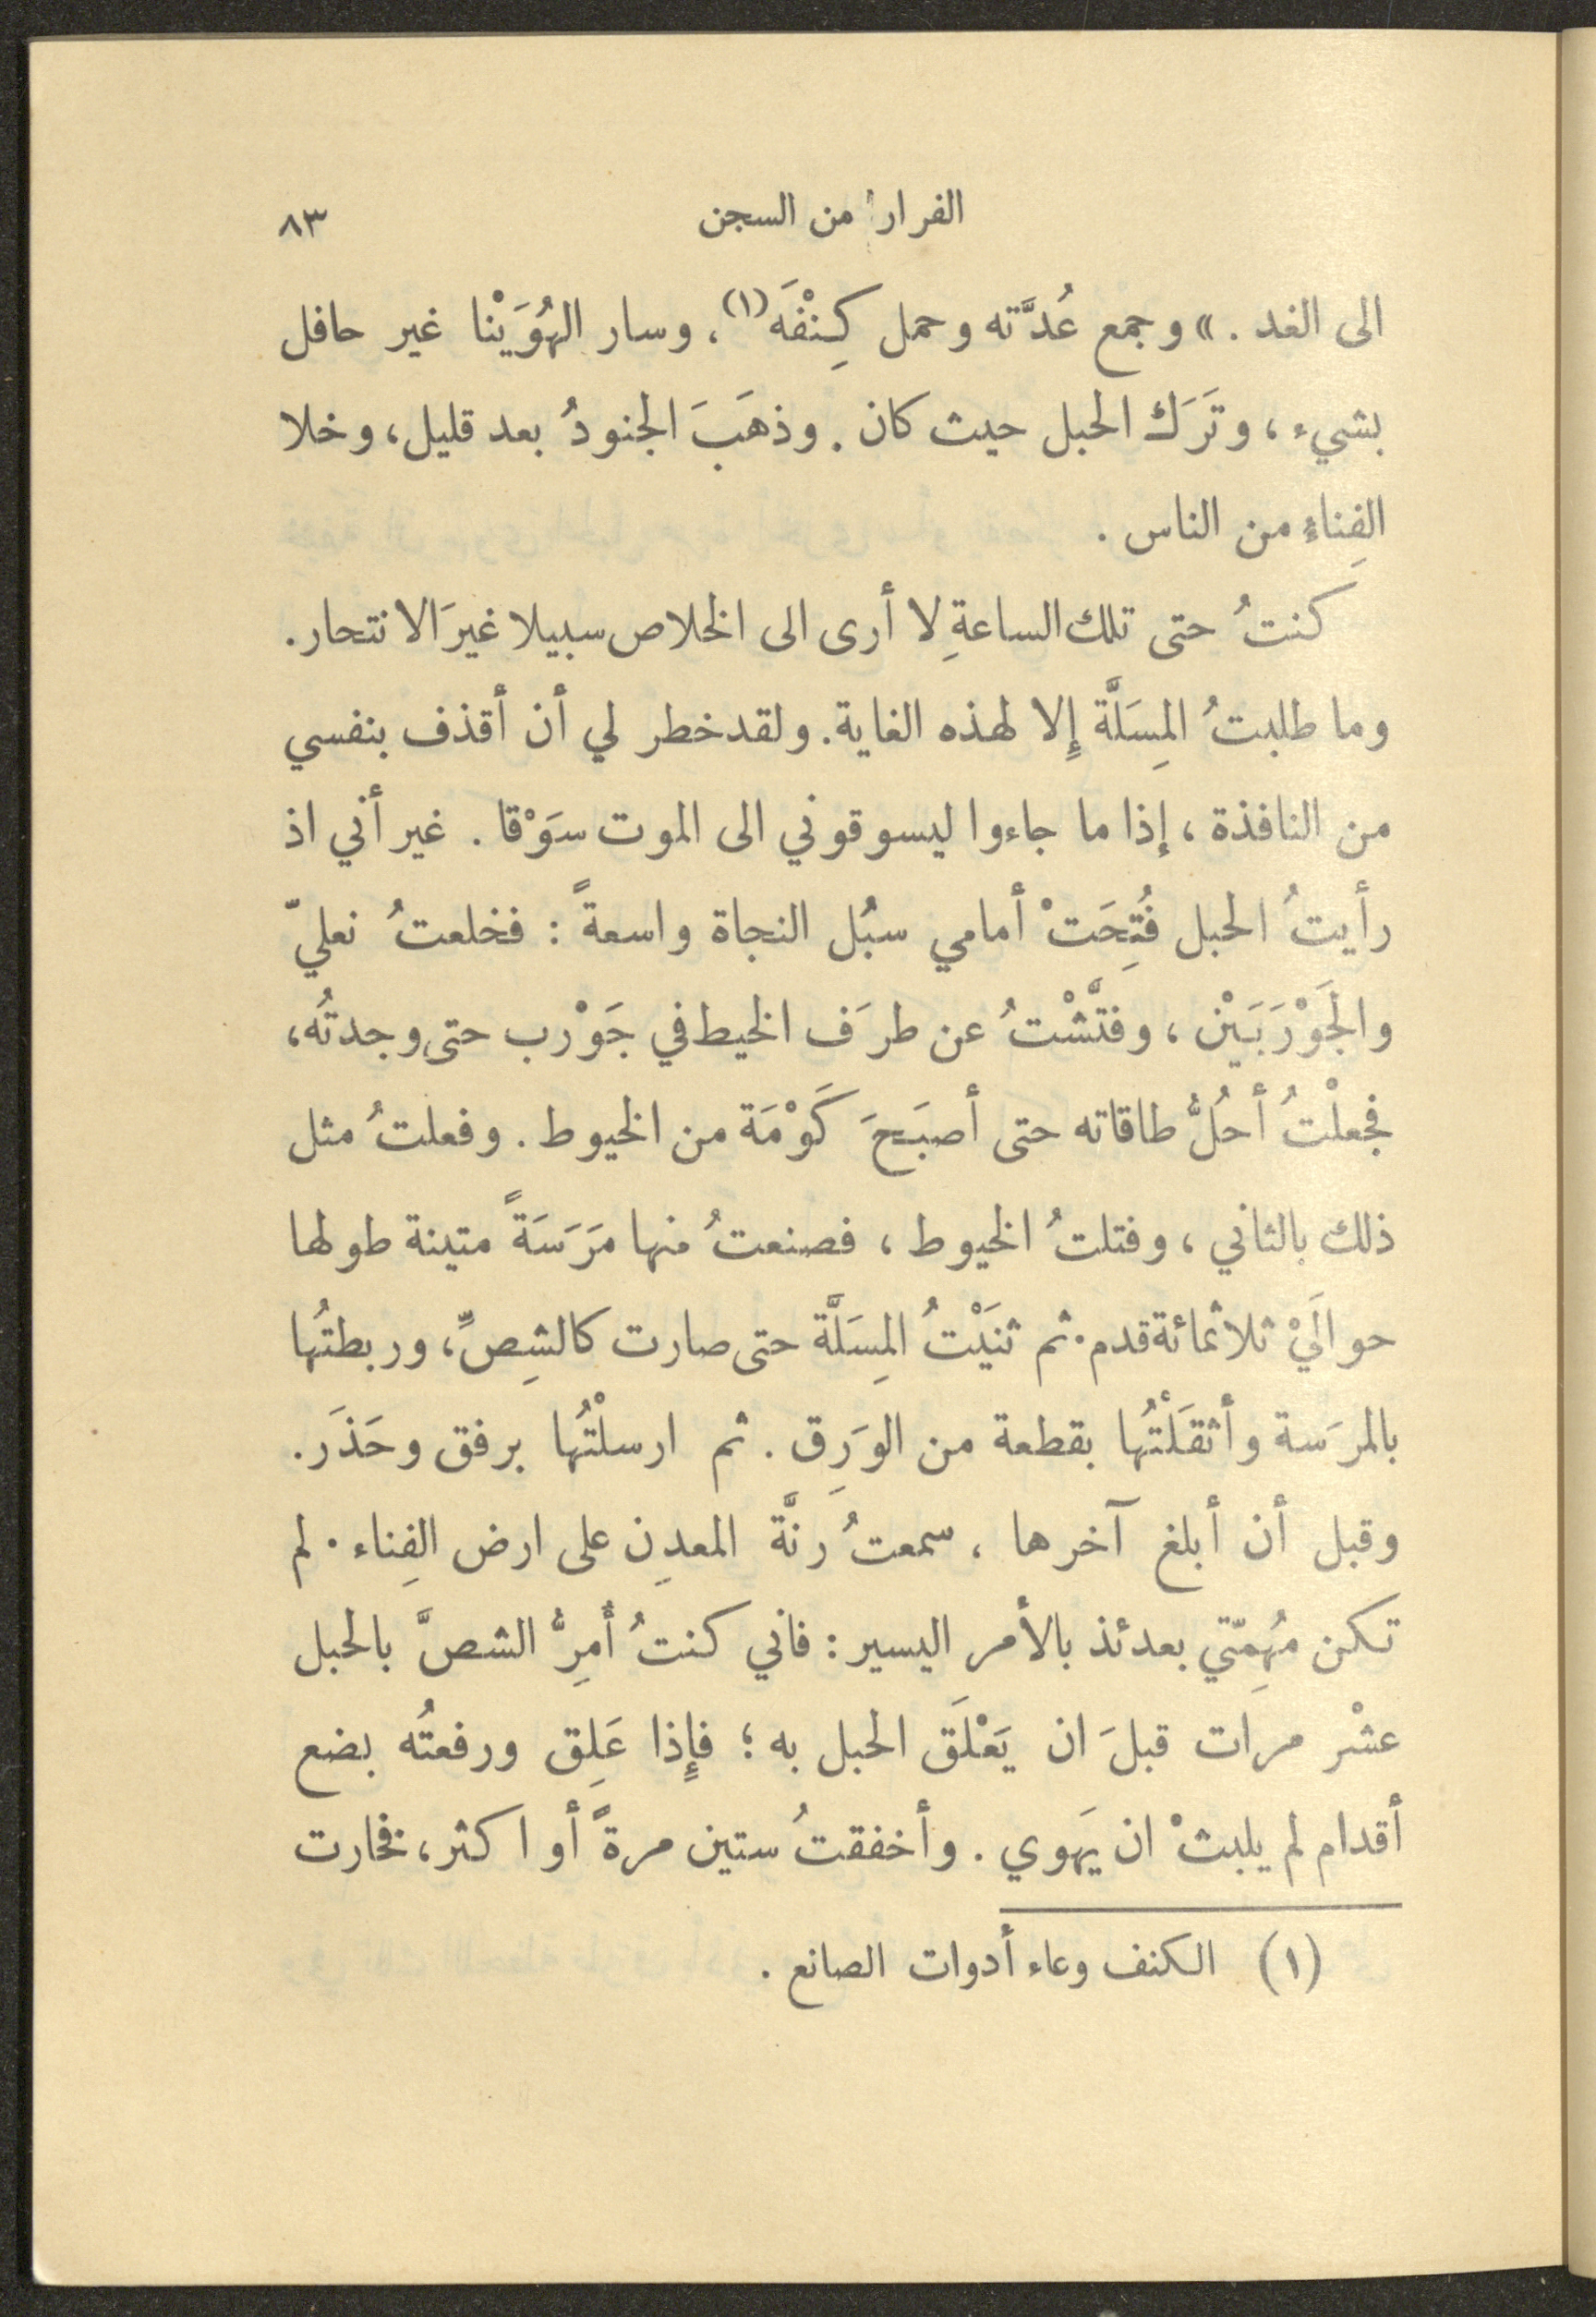 الفرار من السجن ٨٣
الى الغد . » وجمع عُدَّته وحمل كِنْفَه (١)، وسار الهُوَيْنا غير حافل
بشيء ، وتَرَك الحبل حيث كان . وذهَبَ الجنودُ بعد قليل، وخلا
الفِناءُ من الناس .
كنتُ حتى تلك الساعةِ لا أرى الى الخلاص سبيلا غيرَ الانتحار.
وما طلبتُ المِسَلَّة إِلا لهذه الغاية. ولقد خطر لي أن أقذف بنفسي
من النافذة ، إذا ما جاءوا ليسوقوني الى الموت سَوْقا . غير أني اذ
رأيتُ الحبل فُتِحَتْ أمامي سبُل النجاة واسعةً : فخلعتُ نعليّ
والجَوْرَبَيْن ، وفتَّشْتُ عن طرَف الخيط في جَوْرب حتى وجدتُه،
فجعلْتُ أحُلُّ طاقاته حتى أصبَحَ كَوْمَة من الخيوط . وفعلتُ مثل
ذلك بالثاني ، وفتلتُ الخيوط ، فصنعتُ منها مَرَسَةً متينة طولها
حوالَيْ ثلاثمائة قدم . ثم ثنَيْتُ المِسَلَّة حتى صارت كالشِصِّ، وربطتُها
بالمرَسة وأثقَلْتُها بقطعة من الوَرِق . ثم ارسلْتُها برفق وحَذَر .
وقبل أن أبلغ آخرها ، سمعتُ رنَّة المعدِن على ارض الفِناء . لم
تكن مُهِمّتي بعدئذ بالأمر اليسير : فاني كنتُ أُمِرُّ الشصَّ بالحبل
عشْر مرات قبلَ ان يَعْلَق الحبل به ؛ فإِذا عَلِق ورفعتُه بضع
أقدام لم يلبثْ ان يَهوي . وأخفقتُ ستين مرةً أو اكثر، فخارت
(١) الكنف وعاء أدوات الصانع .